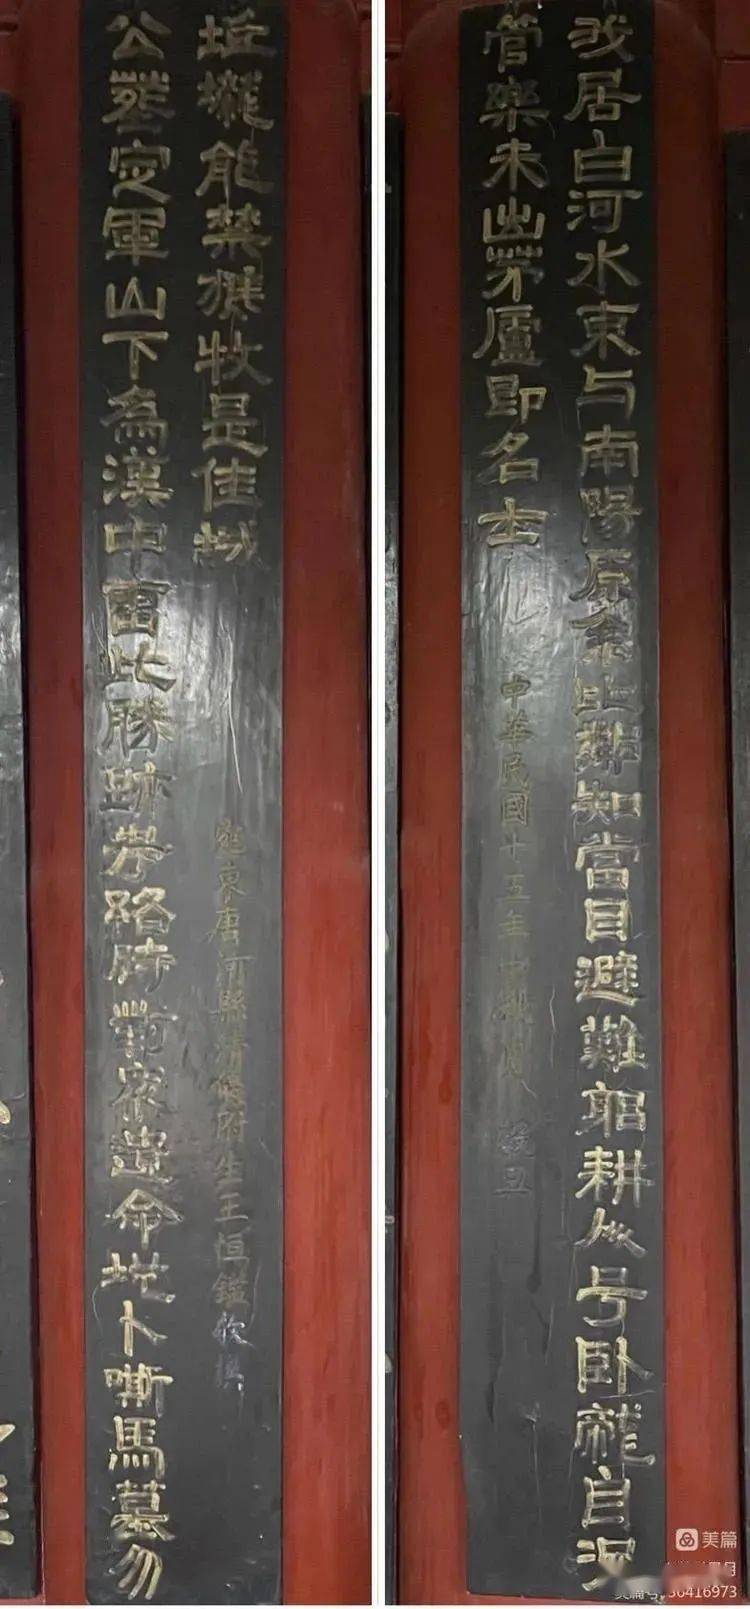 我居白河水東与南陽原比鄰知當日避難躬耕号卧龍自況
管樂未出茅廬即名士
中華民國十五年中秋月 穀旦
公葬定軍山下為漢中留此勝跡考臨時對衆遺命地卜嘶馬墓勿
坵壠能禁樵牧是佳城
宛東唐河縣清優附生王恒鑑敬撰
美篇
美篇号:50416973